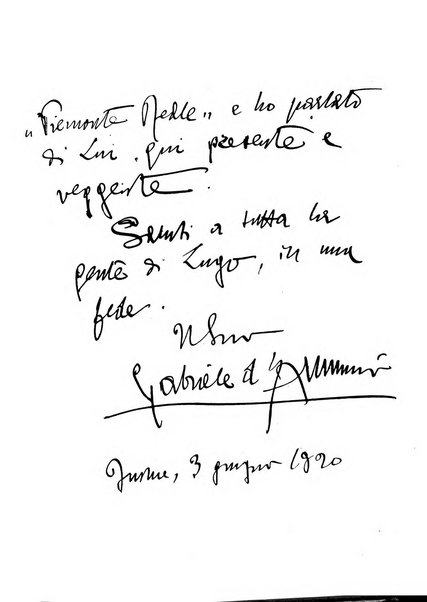 „Piemonte Reale„ e ho parlato
di Lui, qui presente e
veggente.
Saluti a tutta la
gente di Lugo, in una
fede.
Il Suo
Gabriele d'Annunzio
Fiume, 3 giugno 1920